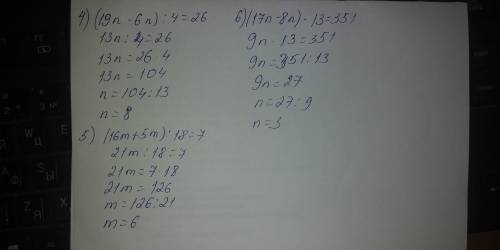 4) (19n - 6n) : 4 = 26
13n : 4 = 26
13n = 26 · 4
13n = 104
n = 104 : 13
n = 8
5.) (16m + 5m) : 18 = 7
21m : 18 = 7
21m = 7 · 18
21m = 126
m = 126 : 21
m = 6
6) (17n - 8n) · 13 = 351
9n · 13 = 351
9n = 351 : 13
9n = 27
n = 27 : 9
n = 3